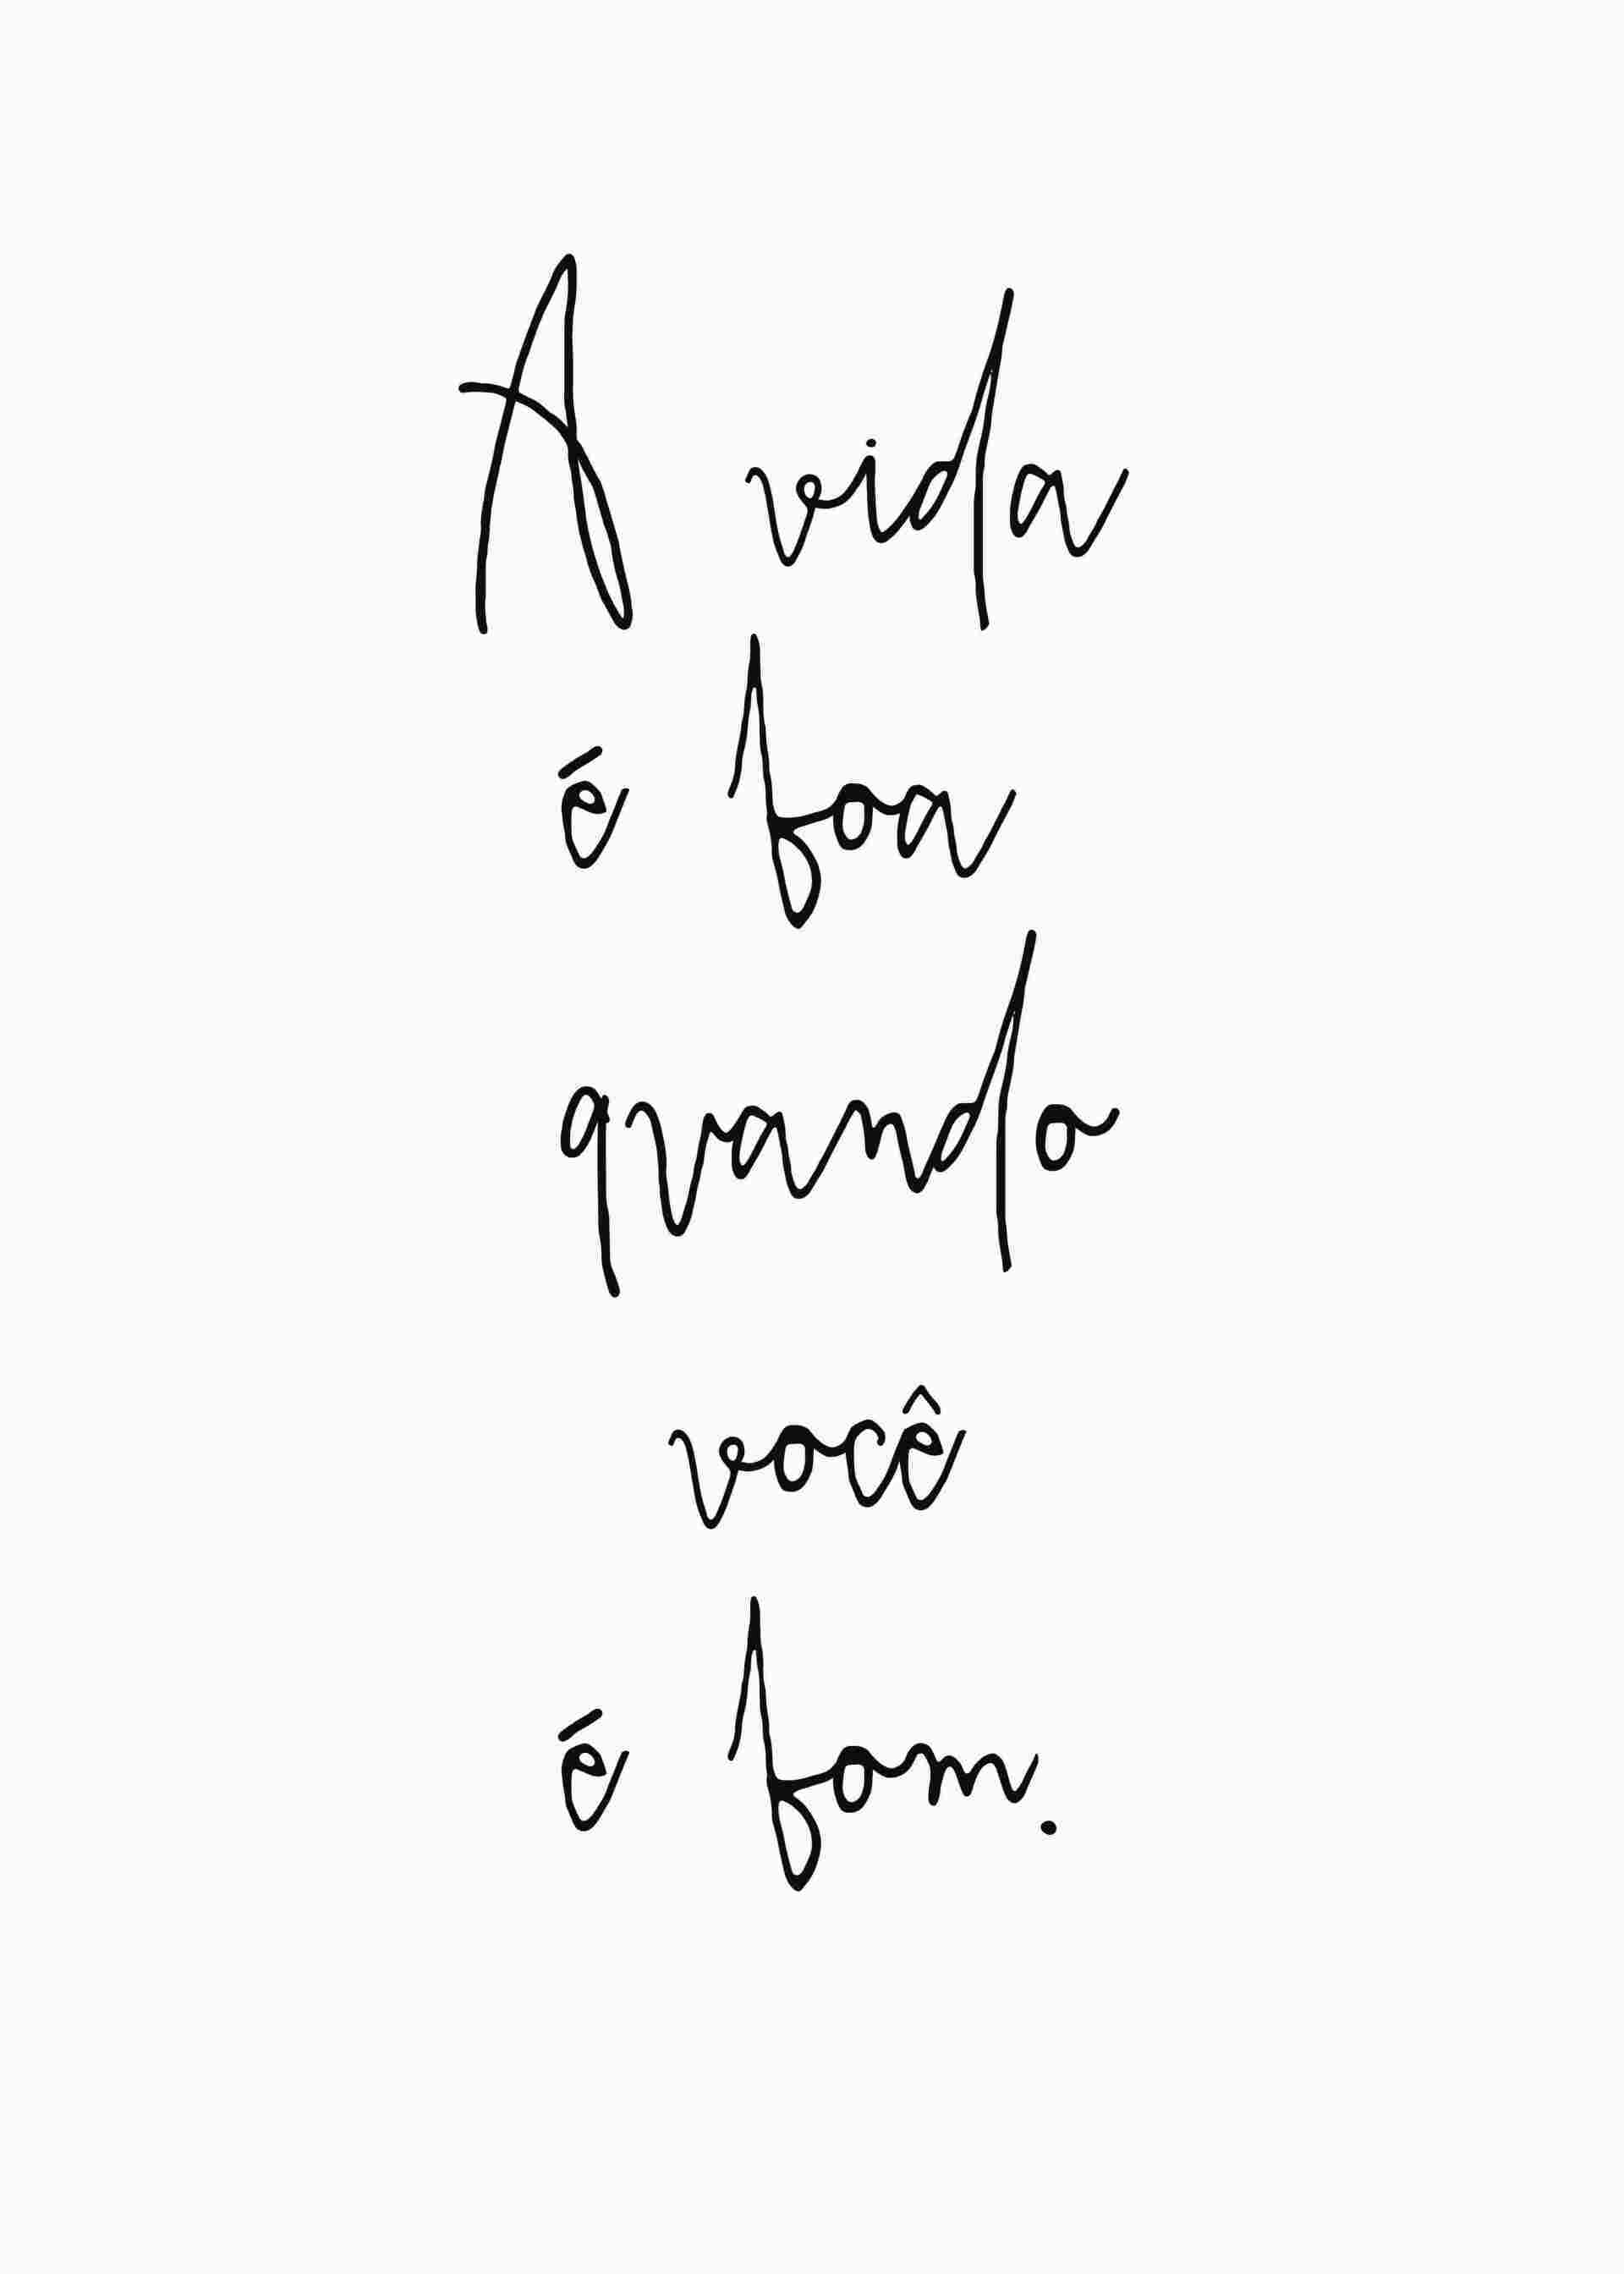 A vida
é boa
quando
você
é bom.